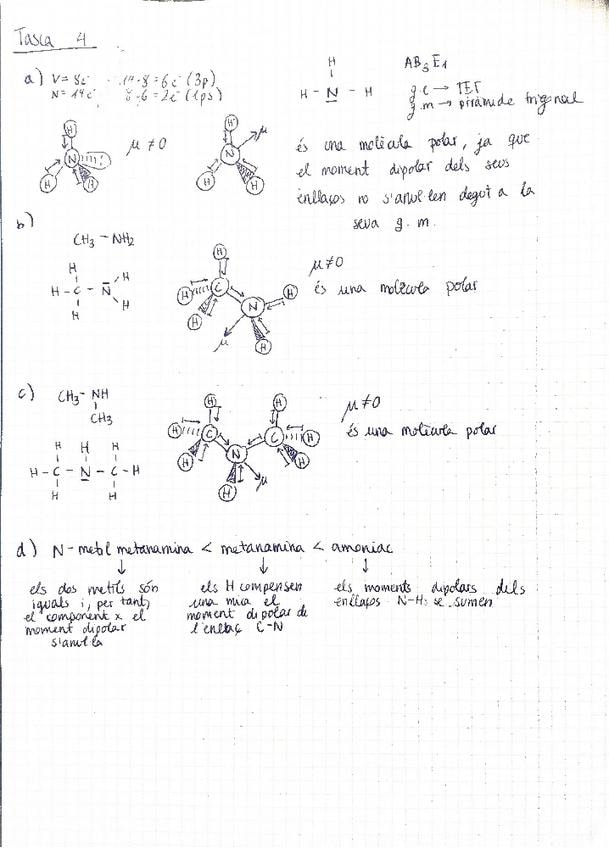 Tasca 4
a) V = 8e⁻ 14-8 = 6e⁻ (3p)
N = 14e⁻ 8-6 = 2e⁻ (1ps)
H
H - N - H
AB₃E₁
g.e → TET
g.m → piràmide trigonal
H
N
H H
μ ≠ 0
H
N
H H
μ
és una molècula polar, ja que
el moment dipolar dels seus
enllaços no s'anul·len degut a la
seva g.m.
b)
CH₃ - NH₂
H
H - C - N
H
H
H
H
H C
H
N H
H
μ
μ ≠ 0
és una molècula polar
c)
CH₃ - NH
CH₃
H H H
H - C - N - C - H
H H
H H
H C C H
H N H
H μ
μ ≠ 0
és una molècula polar
d) N-metil metanamina < metanamina < amoníac
els dos metils són
iguals i, per tant,
el component x el
moment dipolar
s'anul·la
els H compensen
una mica el
moment dipolar de
l'enllaç C-N
els moments dipolars dels
enllaços N-H, se sumen